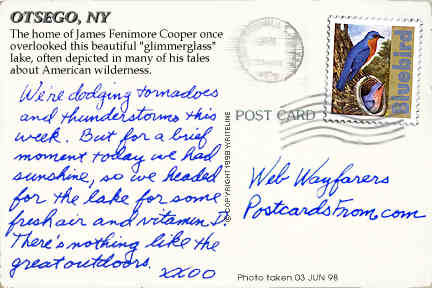 OTSEGO, NY
The home of James Fenimore Cooper once
overlooked this beautiful "glimmerglass"
lake, often depicted in many of his tales
about American wilderness.
We're dodging tornadoes
and thunderstorms this
week. But for a brief
moment today we had
sunshine, so we headed
for the lake for some
fresh air and vitamin D.
There's nothing like the
great outdoors.
xxoo
© COPYRIGHT 1998 WRITELINE
POST CARD
Bluebird
Web Wayfarers
PostcardsFrom.com
Photo taken 03 JUN 98